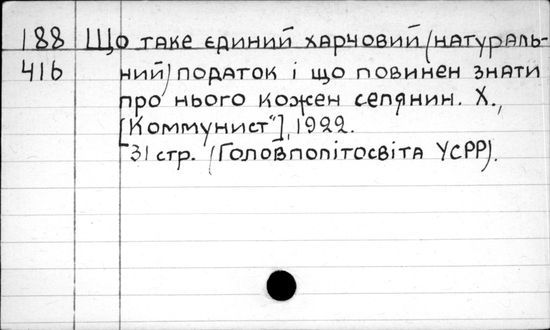 188 Що таке єдиний харчовий (натураль-
416 ний) податок і що повинен знати
про нього кожен селянин. Х.,
[„Коммунист"], 1922.
31 стр. (Головполітосвіта УСРР).